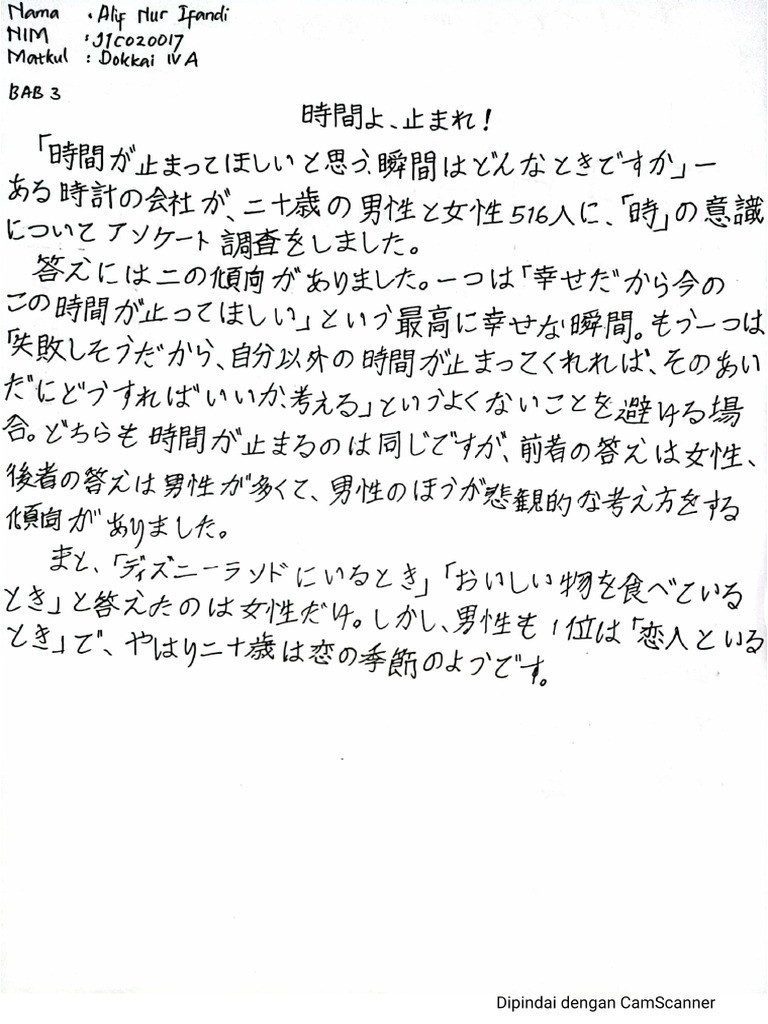 Nama : Alif Nur Ifandi
NIM : J1C020017
Matkul : Dokkai IV A
BAB 3
時間よ、止まれ!
「時間が止まってほしいと思う、瞬間はどんなときですか」ー
ある時計の会社が、二十歳の男性と女性516人に、「時」の意識
についてアソケート調査をしました。
答えには二の傾向がありました。一つは「幸せだから今の
この時間が止ってほしい」という最高に幸せな瞬間。もう一つは
「失敗しそうだから、自分以外の時間が止まってくれれば、そのあい
だにどうすればいいか、考える」というよくないことを避ける場
合。どちらも時間が止まるのは同じですが、前者の答えは女性、
後者の答えは男性が多くて、男性のほうが悲観的な考え方をする
傾向がありました。
まと、「ディズニーランドにいるとき」「おいしい物を食べている
とき」と答えたのは女性だけ。しかし、男性も1位は「恋人といる
とき」で、やはり二十歳は恋の季節のようです。
Dipindai dengan CamScanner